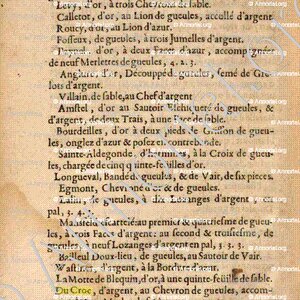 Levy, d'or, à trois Chevrons de sable.
Calletot, d'or, au Lion de gueules, accullé d'argent.
Roucy, d'or, au Lion d'azur.
Fosseux, de gueules, à trois Jumelles d'argent.
d'or, à deux Faces d'azur, accompagnée
de neuf Merlettes de gueules, 4. 2. 3.
d'or, Découppé de gueules, semé de Gre-
lots d'argent.
Villain, de sable, au Chef d'argent
Amstel, d'or au Sautoir Eschiqueté de gueules, &
d'argent, de deux Traits, à une Face de sable.
Bourdeilles, d'or à deux pieds de Griffon de gueu-
les, onglez d'azur & posez en contrebande.
Sainte-Aldegonde, d'hermines, à la Croix de gueu-
les, chargée de cinq quinte-feüilles d'or.
Longueval, Bandé de gueules, & de Vair, de six pieces.
Egmont, Chevronné d'or & de gueules.
Lalin, de gueules, à dix Lozanges d'argent en
pal, 3. 4. 3.
Mansfeld, Ecartelé au premier & quatrisme de gueu-
les, à trois Faces d'argent au second & troisisme, de
gueules, à neuf Lozanges d'argent en pal, 3. 3. 3.
Bailleul Doux-lieu, de gueules, au Sautoir de Vair.
d'argent, à la Bordure d'azur.
La Motte de Blequin, d'or, à une quinte-feüille de sable.
Du Croc, d'argent, au Chevron de gueules, accom-